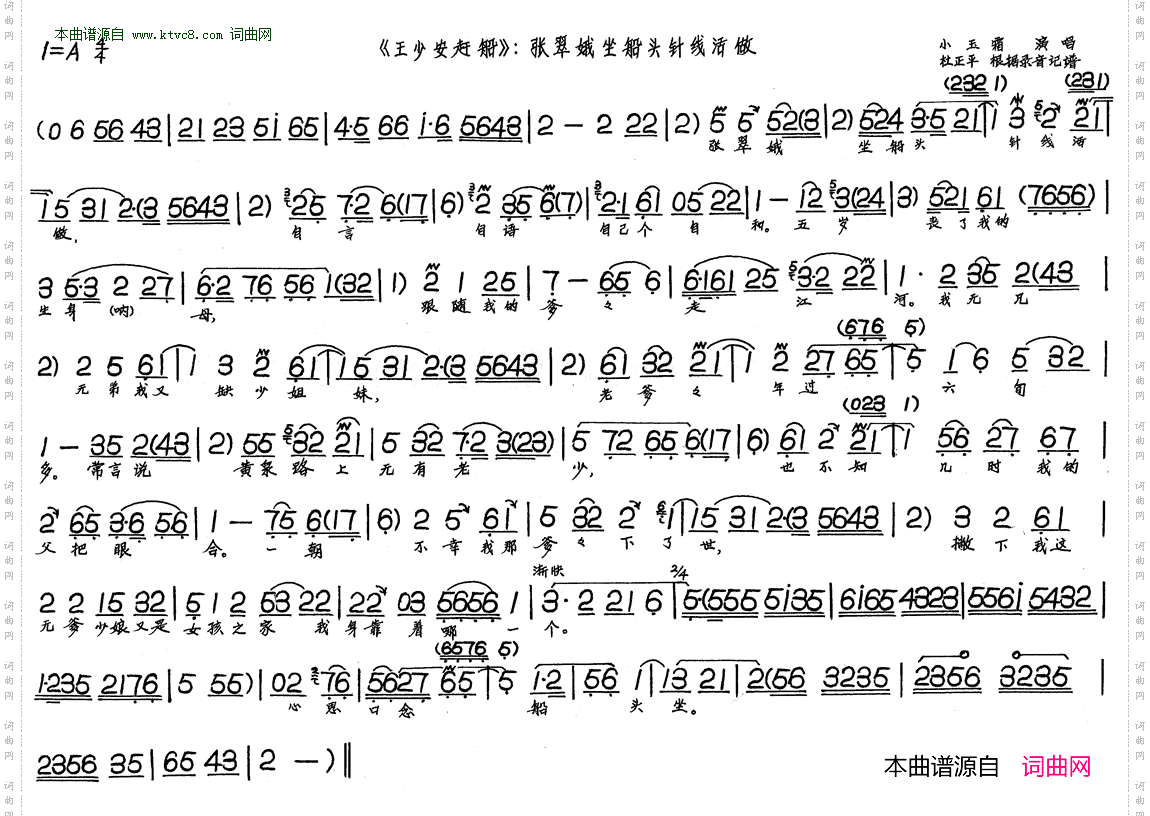 本曲谱源自 www.ktvc8.com 词曲网
1=A 4/4
《王少安赶船》：张翠娥坐船头针线活做
小玉霜 演唱
杜正平 根据录音记谱
(232 1) (231)
(0 6 56 43|21 23 5i 65|4·5 66 i·6 5643|2 — 2 22|2) 5 5 52(3|2) 524 3·5 21 1 3 2 21|
张翠娥 坐船头 针线活
15 31 2·(3 5643|2) 25 7·2 6(17|6) 2 35 6(7)|2·1 61 05 22|1 — 12 3(24|3) 521 61 (7656)|
做， 自言 自语 自己个自和。五岁 丧了我的
3 5·3 2 27|6·2 76 56 1(32|1) 2 1 25|7 — 65 6|6·161 25 3·2 22|1· 2 35 2(43|
生身(呐) 母， 跟随我的爹々老江河。我无兄
(676 5)
2) 2 5 61 1 3 2 61 15 31 2·(3 5643|2) 61 32 21 1 2 27 65 5 1 6 5 32|
无弟我又缺少姐妹， 老爹々年过六旬
(023 1)
1 — 35 2(43|2) 55 32 21|5 32 7·2 3(23)|5 72 65 6(17|6) 61 2 21 1 56 27 67|
多。常言说 黄泉路上无有老少， 也不知几时我的
2 65 3·6 56|1 — 75 6(17|6) 2 5 61|5 32 2 1|15 31 2·(3 5643|2) 3 2 61|
父把眼合。一朝 不幸我那爹々下了世， 撇下我这
渐快 2/4
2 2 15 32|5 1 2 63 22|22 03 5656 1|3· 2 21 6|5(555 5i35|6i65 4323|556i 5432|
无爹少娘又是女孩之家我身靠着哪一个。
(6576 5)
1·235 2176|5 55)|02 76|5627 65 5 1·2|56 1|13 21|2(56 3235|2356 3235|
心思口念 船头坐。
2356 35|65 43|2 —)‖
本曲谱源自 词曲网
词曲网